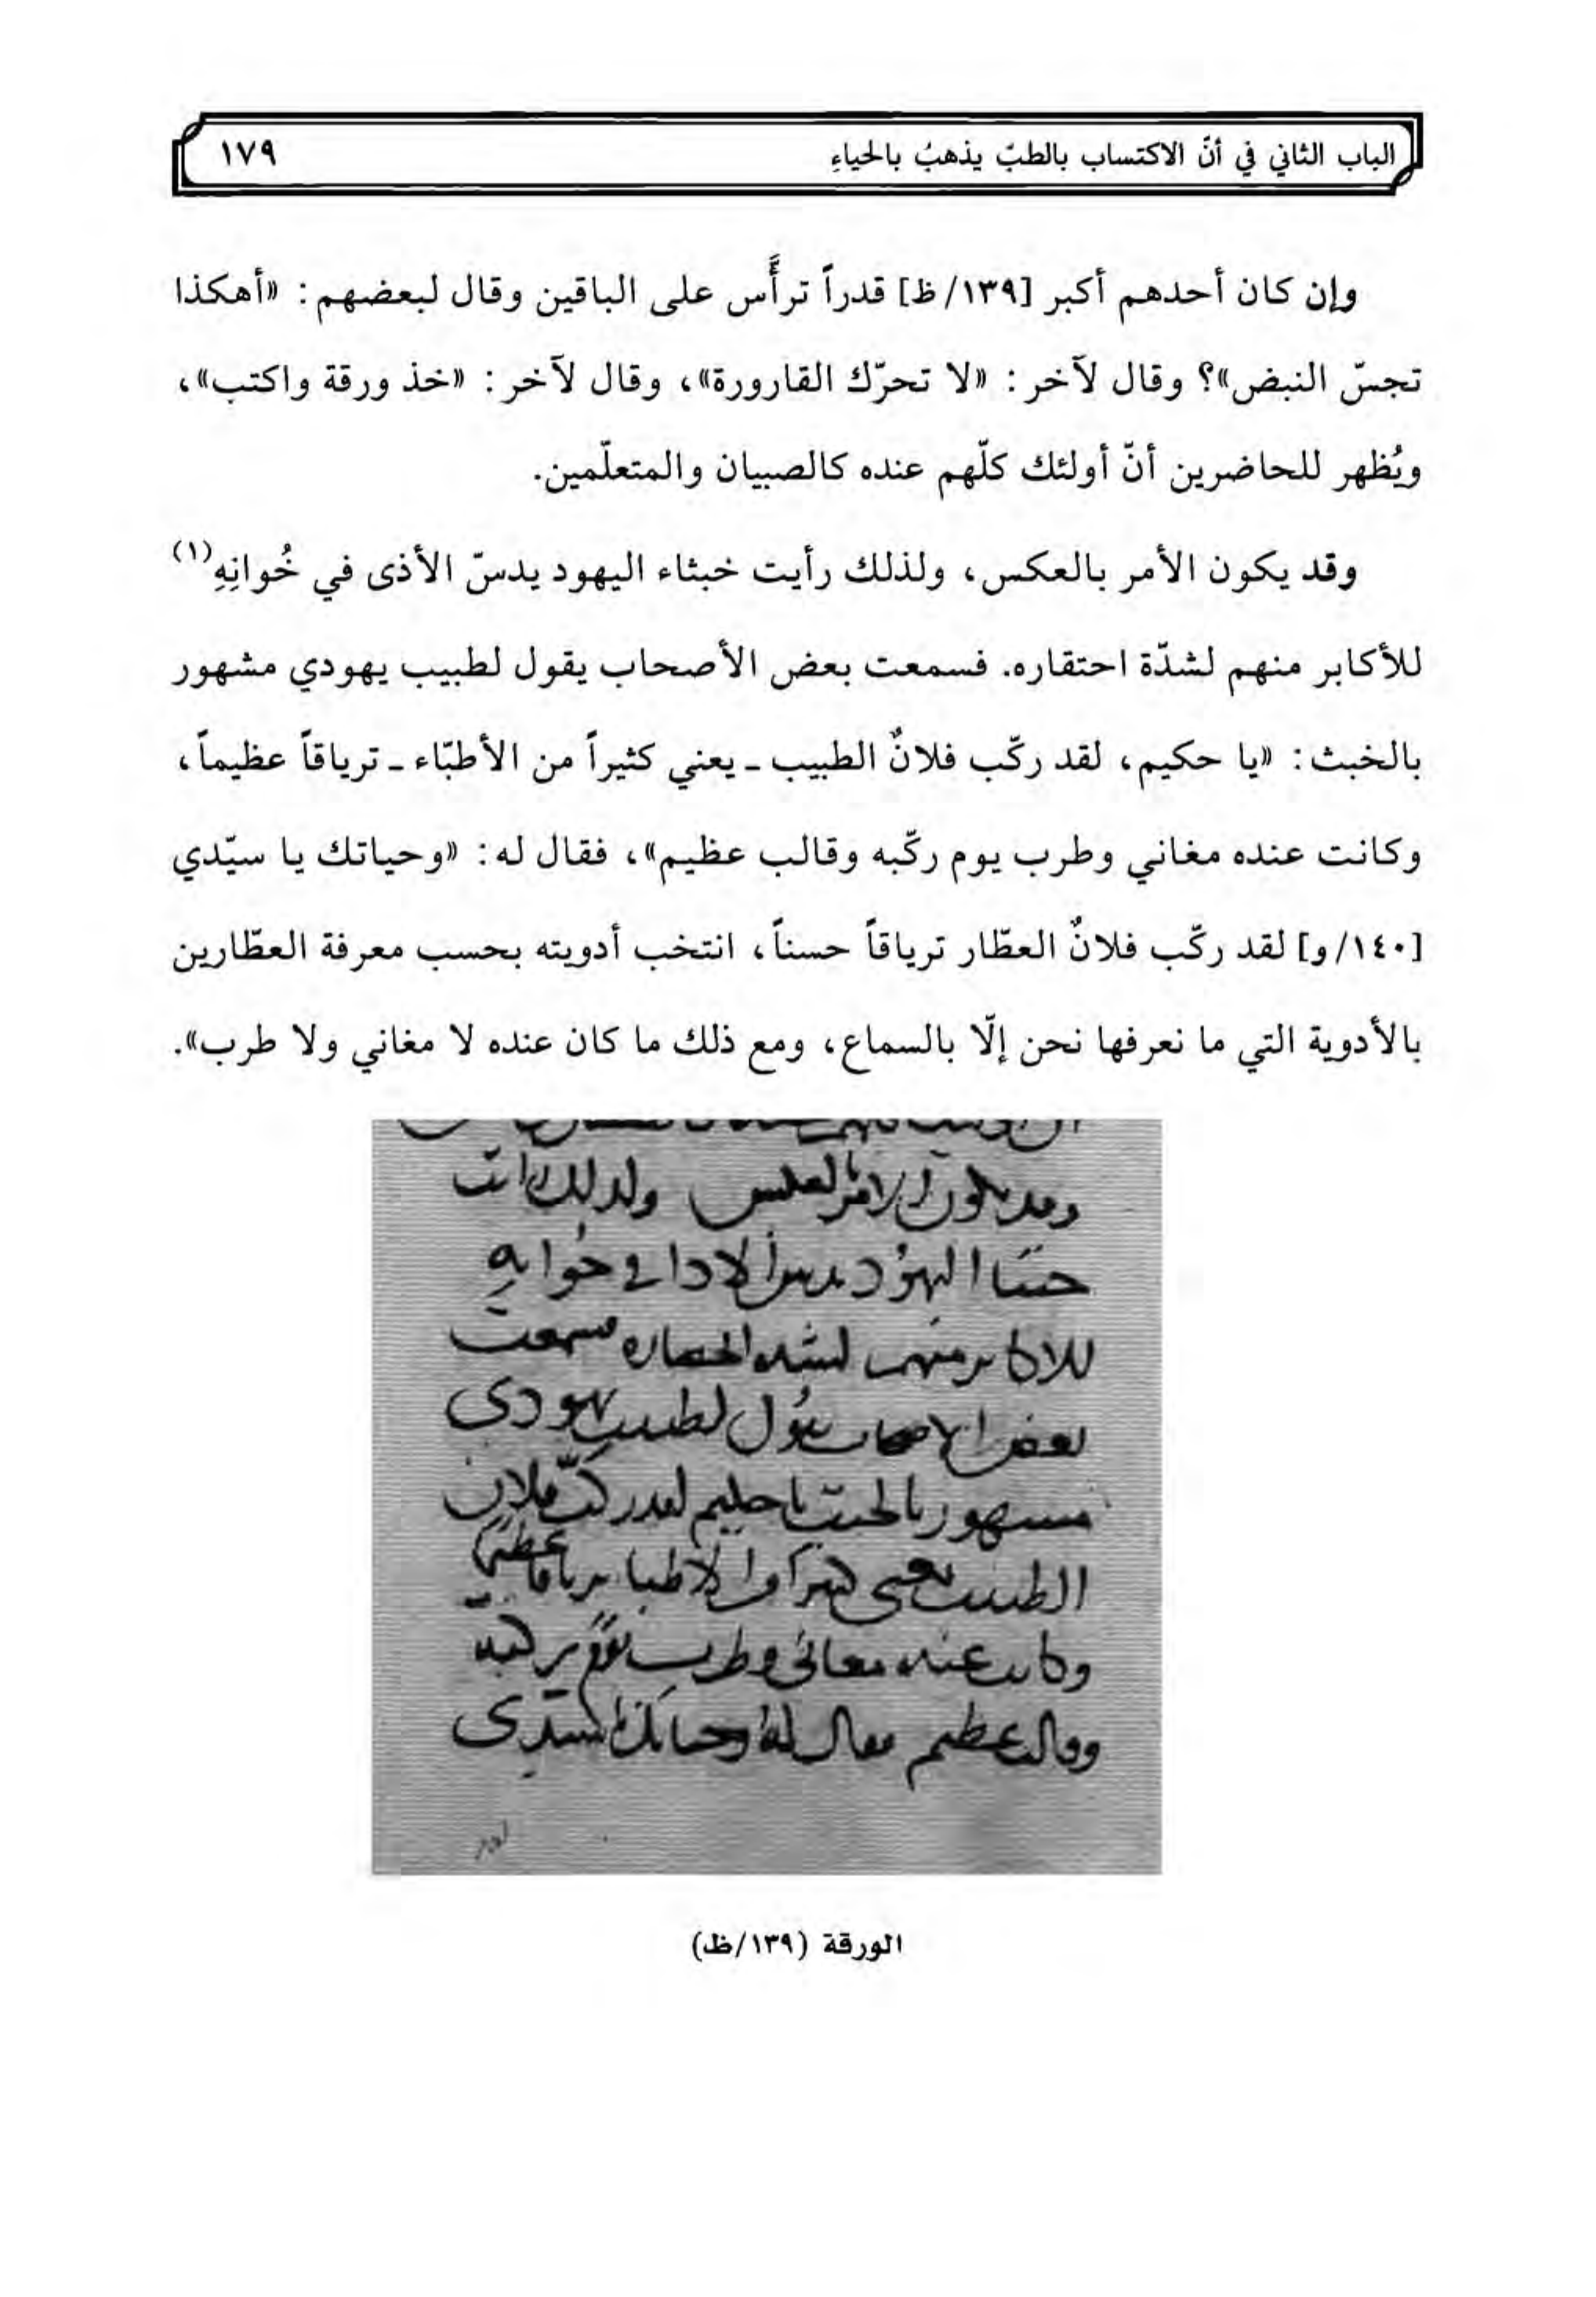 الباب الثاني في أنّ الاكتساب بالطبّ يذهبُ بالحياءِ ١٧٩
وإن كان أحدهم أكبر [١٣٩/ ظ] قدراً ترأَّس على الباقين وقال لبعضهم: «أهكذا
تجسّ النبض»؟ وقال لآخر: «لا تحرّك القارورة»، وقال لآخر: «خذ ورقة واكتب»،
ويُظهر للحاضرين أنّ أولئك كلّهم عنده كالصبيان والمتعلّمين.
وقد يكون الأمر بالعكس، ولذلك رأيت خبثاء اليهود يدسّ الأذى في خُوانِهِ(١)
للأكابر منهم لشدّة احتقاره. فسمعت بعض الأصحاب يقول لطبيب يهودي مشهور
بالخبث: «يا حكيم، لقد ركّب فلانٌ الطبيب ـ يعني كثيراً من الأطبّاء ـ ترياقاً عظيماً،
وكانت عنده مغاني وطرب يوم ركّبه وقالب عظيم»، فقال له: «وحياتك يا سيّدي
[١٤٠/ و] لقد ركّب فلانٌ العطّار ترياقاً حسناً، انتخب أدويته بحسب معرفة العطّارين
بالأدوية التي ما نعرفها نحن إلّا بالسماع، ومع ذلك ما كان عنده لا مغاني ولا طرب».
وقد يكون الامر بالعكس ولذلك رأيت
خبثا اليهود يدس الاذا في خُوانهِ
للاكابر منهم لشده احتقاره فسمعت
بعض الاصحاب يقُول لطبيب يهودى
مشهور بالخبث يا حكيم لقد ركّب فلان
الطبيب يعنى كثيراً من الاطبا ترياقاً عظيماً
وكانت عنده مغانى وطرب يوم ركبه
وقالب عظيم فقال له وحياتك يا سيّدى
الورقة (١٣٩/ظ)